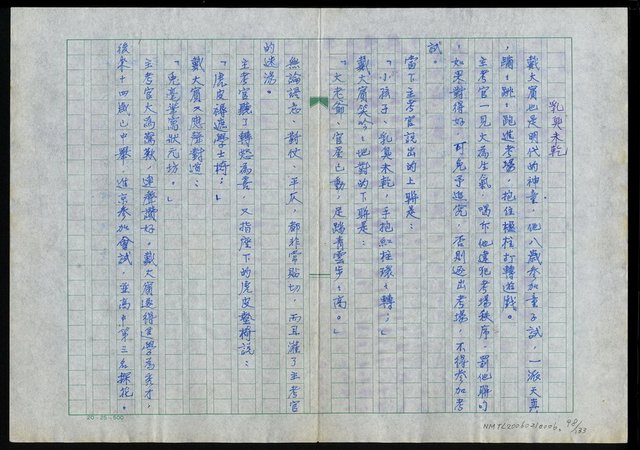 乳臭未乾
戴大賓也是明代的神童，他八歲參加童子試，一派天真
，蹦蹦跳跳跑進考場，抱住楹柱打轉遊戲。
主考官一見大為生氣，喝斥他違犯考場秩序，罰他聯句
，如果對得好，可免予追究，否則逐出考場，不得參加考
試。
當下主考官說出的上聯是：
「小孩子，乳臭未乾，手抱紅柱環環轉；」
戴大賓笑吟吟地對的下聯是：
「大老爺，官星已動，足踏青雲步步高。」
無論語意、對仗、平仄，都非常貼切，而且灌了主考官
的迷湯。
主考官聽了轉怒為喜，又指陛下的虎皮墊椅說：
「虎皮褥遮學士椅；」
戴大賓又應聲對道：
「兔毫筆寫狀元坊。」
主考官大為驚歎，連聲讚好。戴大賓遂得進學為秀才，
後來十四歲已中舉，進京參加會試，並高中第三名探花。
20×25=500
NMTL20060210006. 98/133